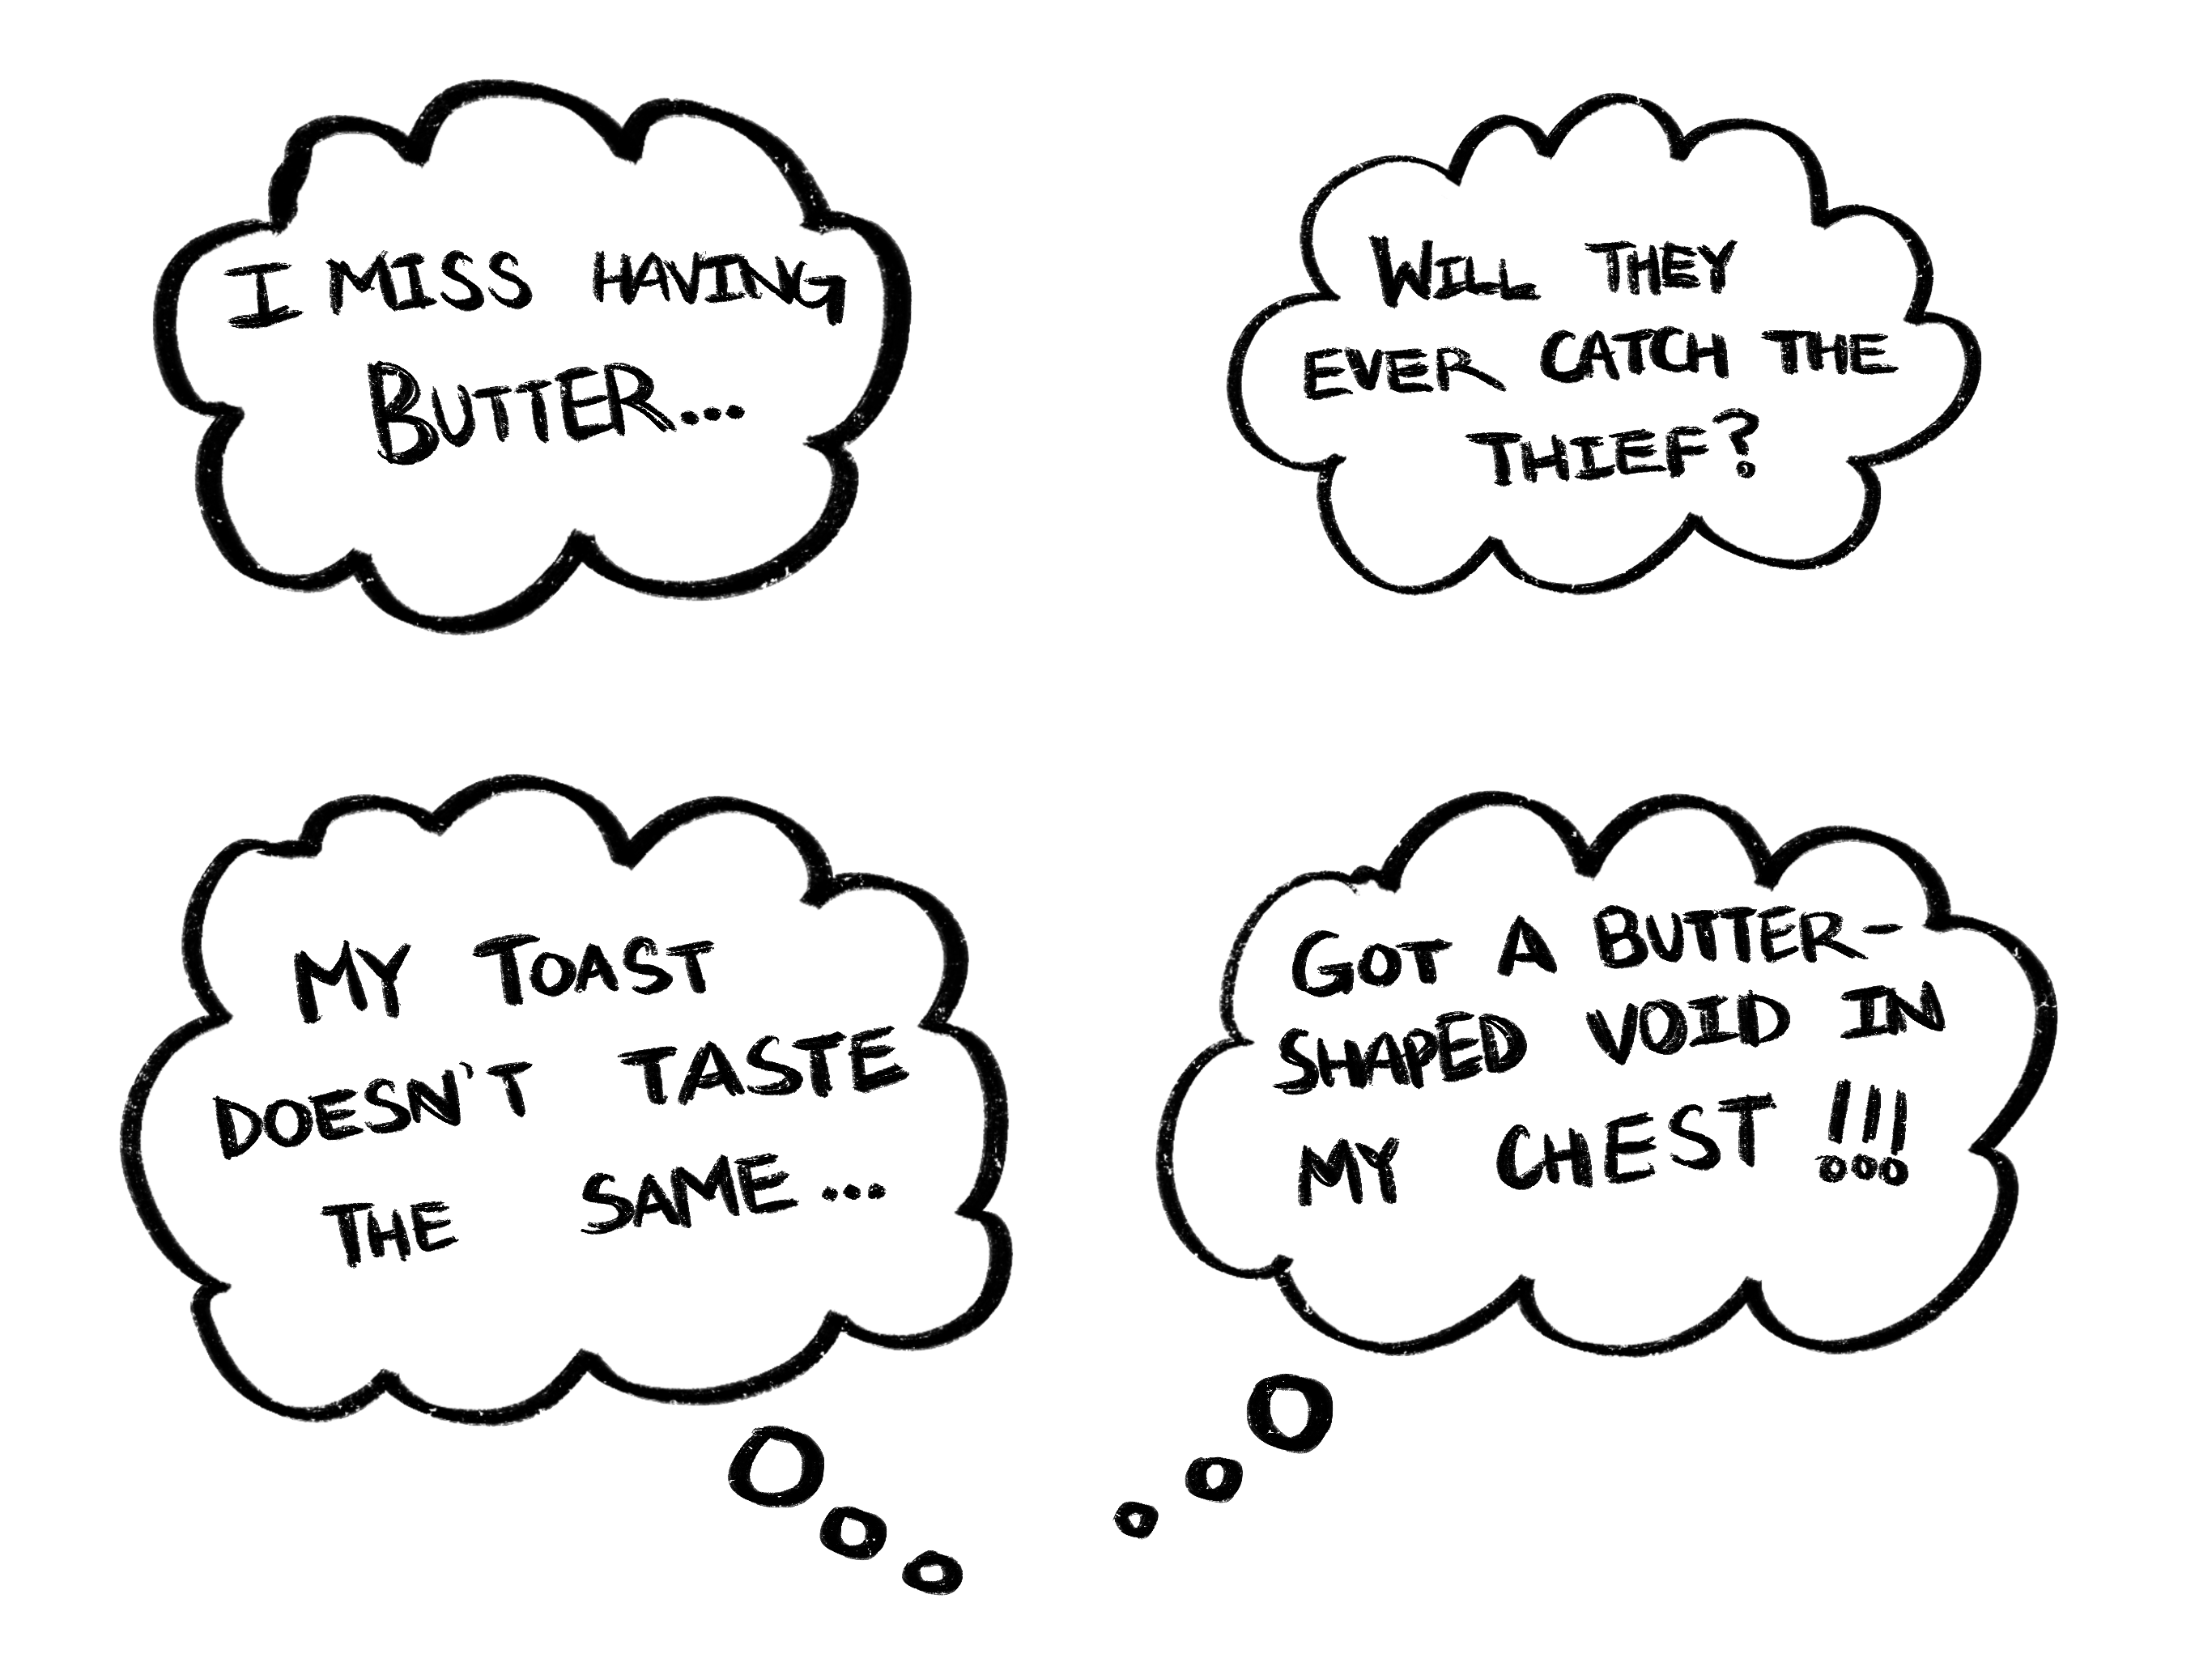 I MISS HAVING
BUTTER...
WILL THEY
EVER CATCH THE
THIEF?
MY TOAST
DOESN'T TASTE
THE SAME...
GOT A BUTTER-
SHAPED VOID IN
MY CHEST!!!